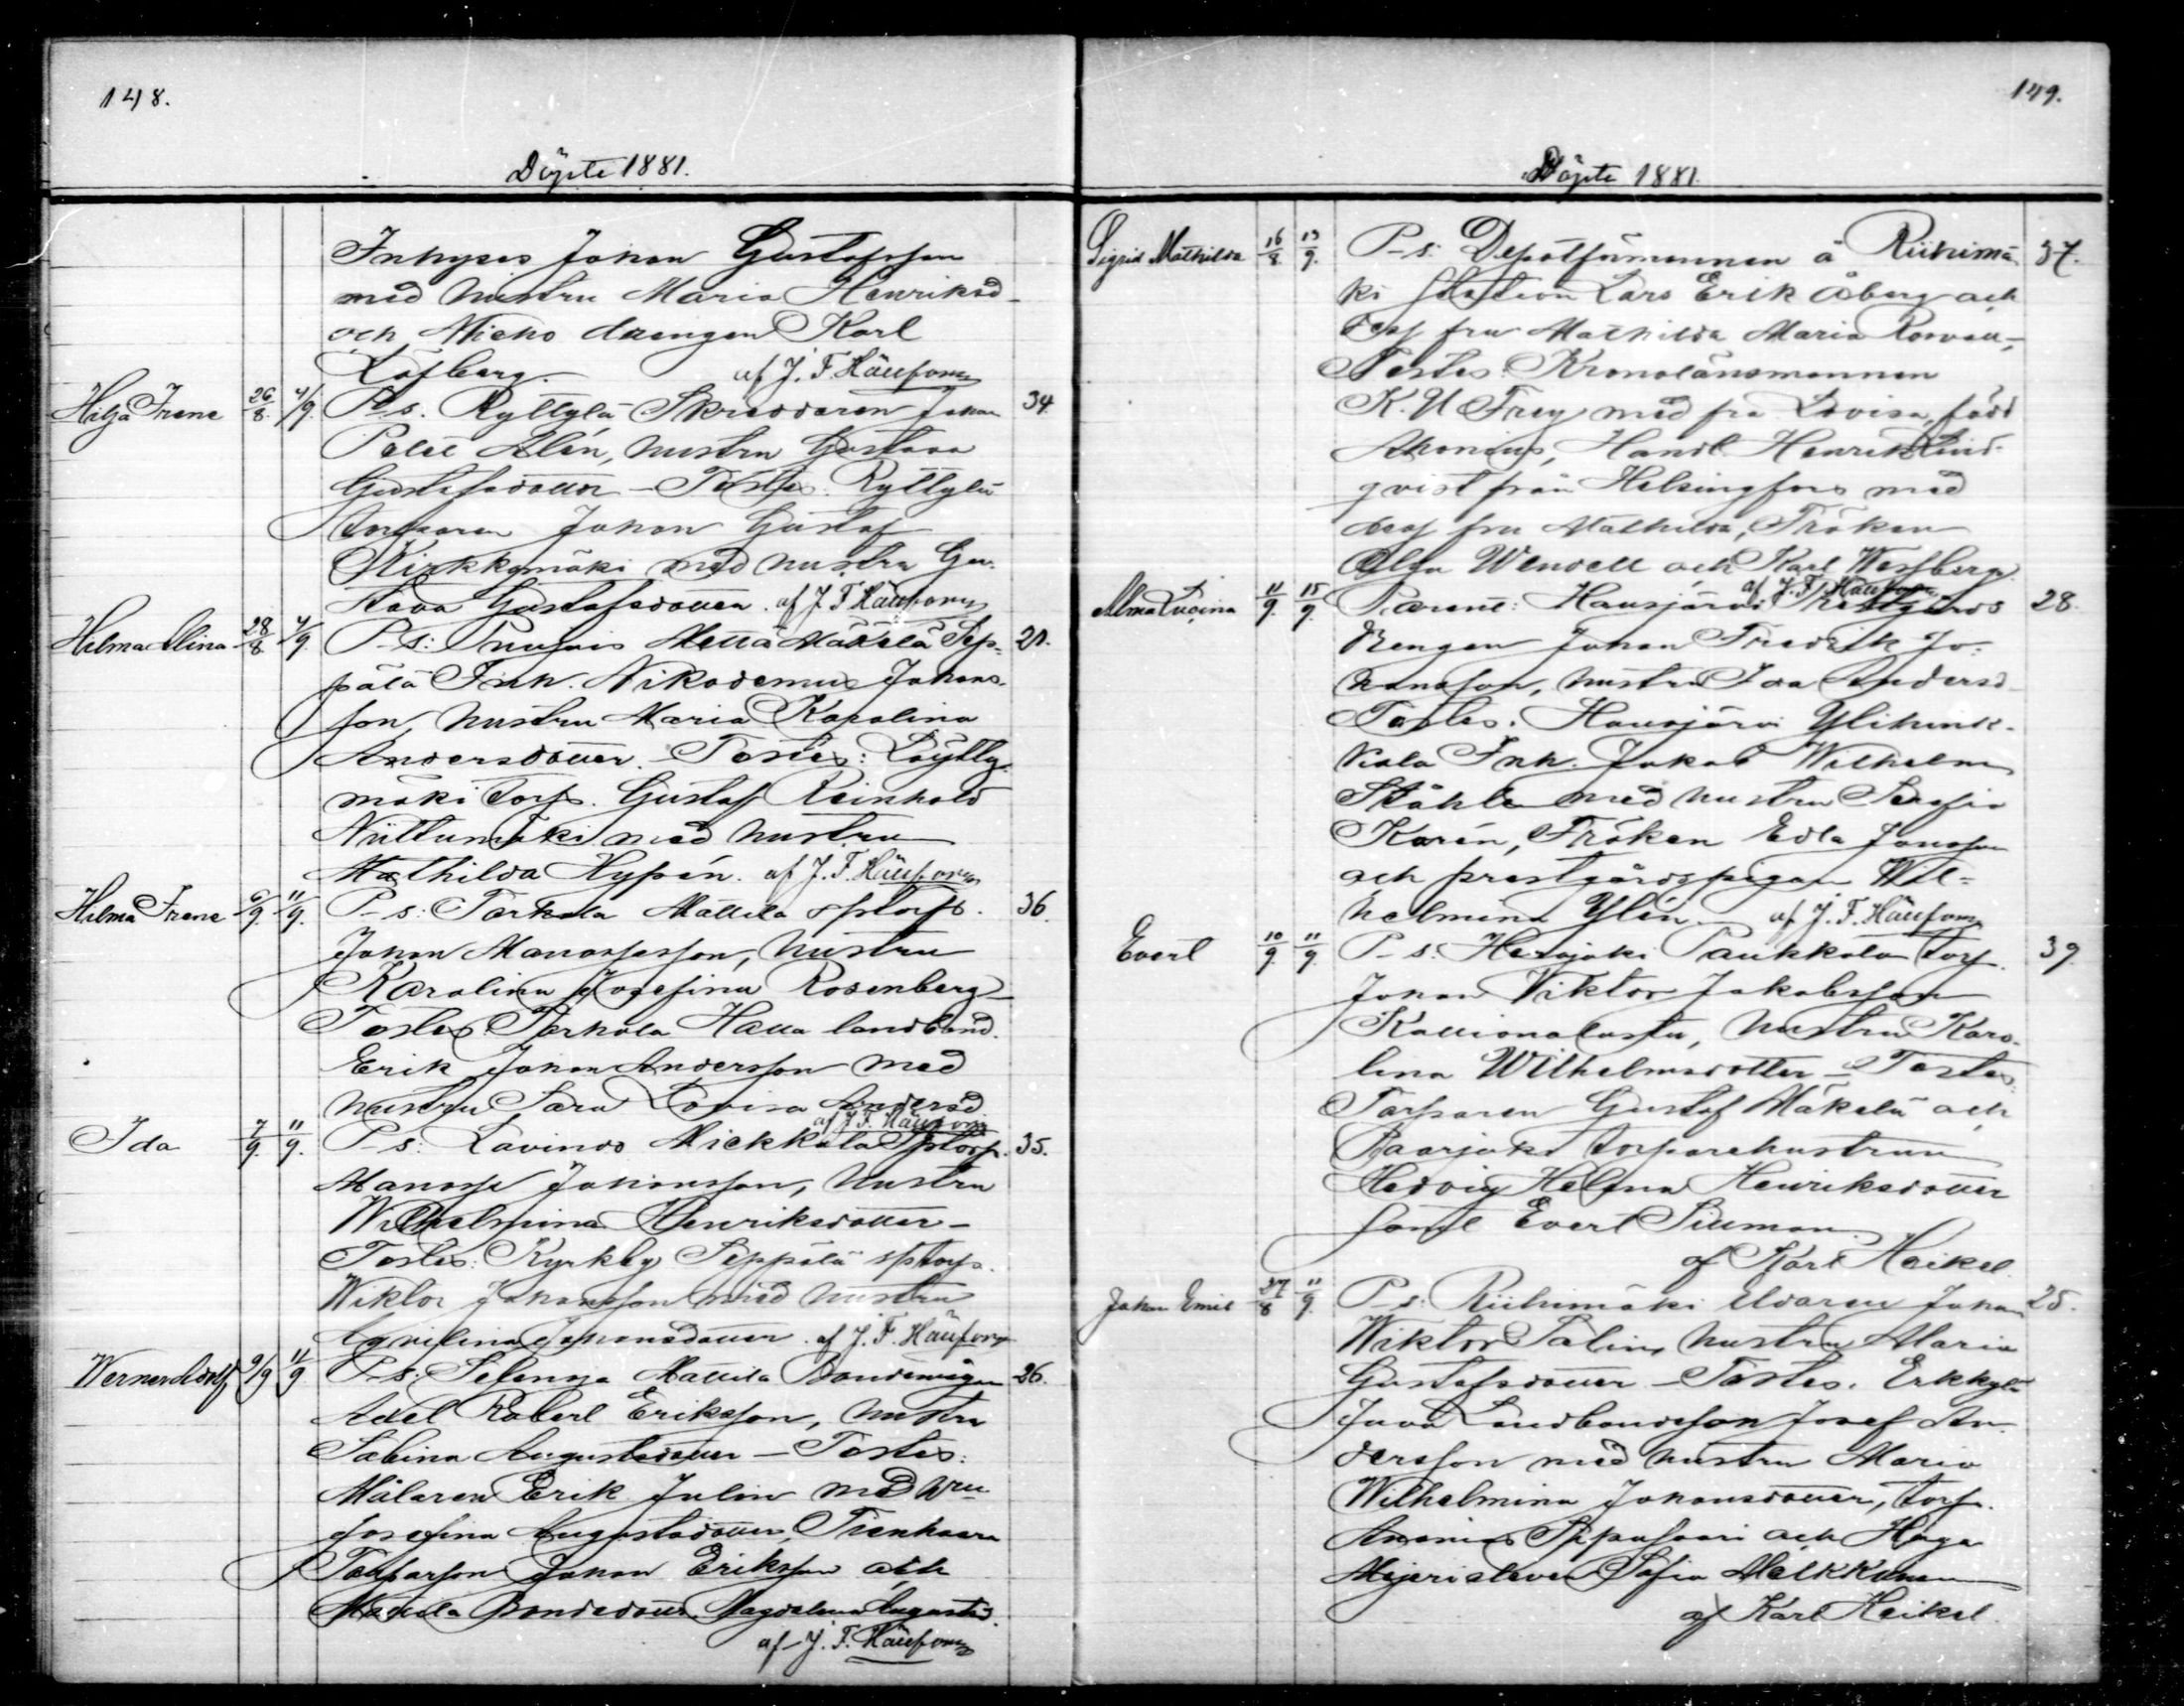 148.
Döpte 1881.
Inhyses Johan Gustafsson
med hustru Maria Henriksd
och Mieho drengen Karl
Löfberg. af J. F. Häusfom
Hilja Irene 26/8 4/9. P-s. Ryttylä Skreddaren Johan 34.
Palèl Alén, hustru Gustava
Gustafsdotter - Testes: Ryttylä
torparen Johan Gustaf
Kirkkomäki med hustru Gu-
stava Gustafsdotter. af J. F. Häusfom
Helma Alina 28/8 4/9. P-s: Puujais Mattä Mäkelä Sep- 21.
pälä Inh. Nikodemus Johans-
son, hustru Maria Karolina
Andersdotter. Testes: Löytty-
mäki torp. Gustaf Reinhold
Niittumäki med hustru
Mathilda Hypén. af J. F. Häusfom
Helma Irene 6/9. 11/9. P-s: Torhola Mattila sptorp. 36.
Johan Manasseson, hustru
Karolina Josefina Rosenberg
Testes: Torhola Halla landbond.
Erik Johan Andersson med
hustru Sara Lovisa Andersd
af J. F. Häusfom
Ida 7/9. 11/9. P-s: Lavinto Mickkola sptorp. 35.
Manasse Johansson, hustru
Wilhelmina Henriksdotter -
Testes: Kyrkby Seppälä sptorp.
Wiktor Johansson med hustru
Agvilina Johansdotter. af J. F. Häusfom
Werner Adolf 9/9 11/9 P-s: Selänoja Mattila Bondemågen 26.
Axel Robert Eriksson, hustru
Sabina Augustsdotter - Testes:
Målaren Erik Julin med hru
Josefina Augustsdotter, Tienhaara
Torparson Johan Eriksson och
Mattila Bondedottr Magdalena Augustsd.
af J. F. Häusfom
149.
Döpte 1881.
Sigrid Mathilda 16/8. 13/9. P-s: Depotförmannen å Riihimä- 37.
ki station Lars Erik Åberg och
dess fru Mathilda Maria
Testes: Kronolänsmannen
K. U Frey med fru Lovisa, född
Ahonius, Handl Henrik Lind-
qvist från Helsingfors med
dess fru Mathilda, Fröken
Olga Wendell och Karl Wessberg
af J. F. Häusfom
Alma Lucina 11/9. 15/9. Parent: Hausjärvi Prestgårds 28.
Rengen Johan Fredrik Jo-
hansson, hustru Ida Andersd
Testes. Hausjärvi Ylihink-
kala Inh. Jakob Wilhelm
Ståhle med hustru Serafia
Karén, Fröken Edla Jonsson
och prestgårdspigan Wil-
helmina Ylén. af J. F. Häusfom
Evert 10/9. 11/9. P-s: Herajoki Paukkola torp. 39.
Johan Viktor Jakobsson
Kallionalusta, hustru Karo-
lina Wilhelmsdotter - Testes
Torparen Gustaf Mäkelä och
Paarjoki torparehustrun
Hedvig Helena Henriksdotter
samt Evert Siuman.
af Karl Heikel.
Johan Emil 27/8 11/9. P-s: Riihimäki eldaren Johan 25.
Wiktor Salin, hustru Maria
Gustafsdotter - Testes. Erkkylä
Juva Landbondeson Josef An-
dersson med hustru Maria
Wilhelmina Johansdotter, torp.
Ananias Seppäsaari och Haga
Mejerieleven Sofia Malkkunen
af Karl Heikel.